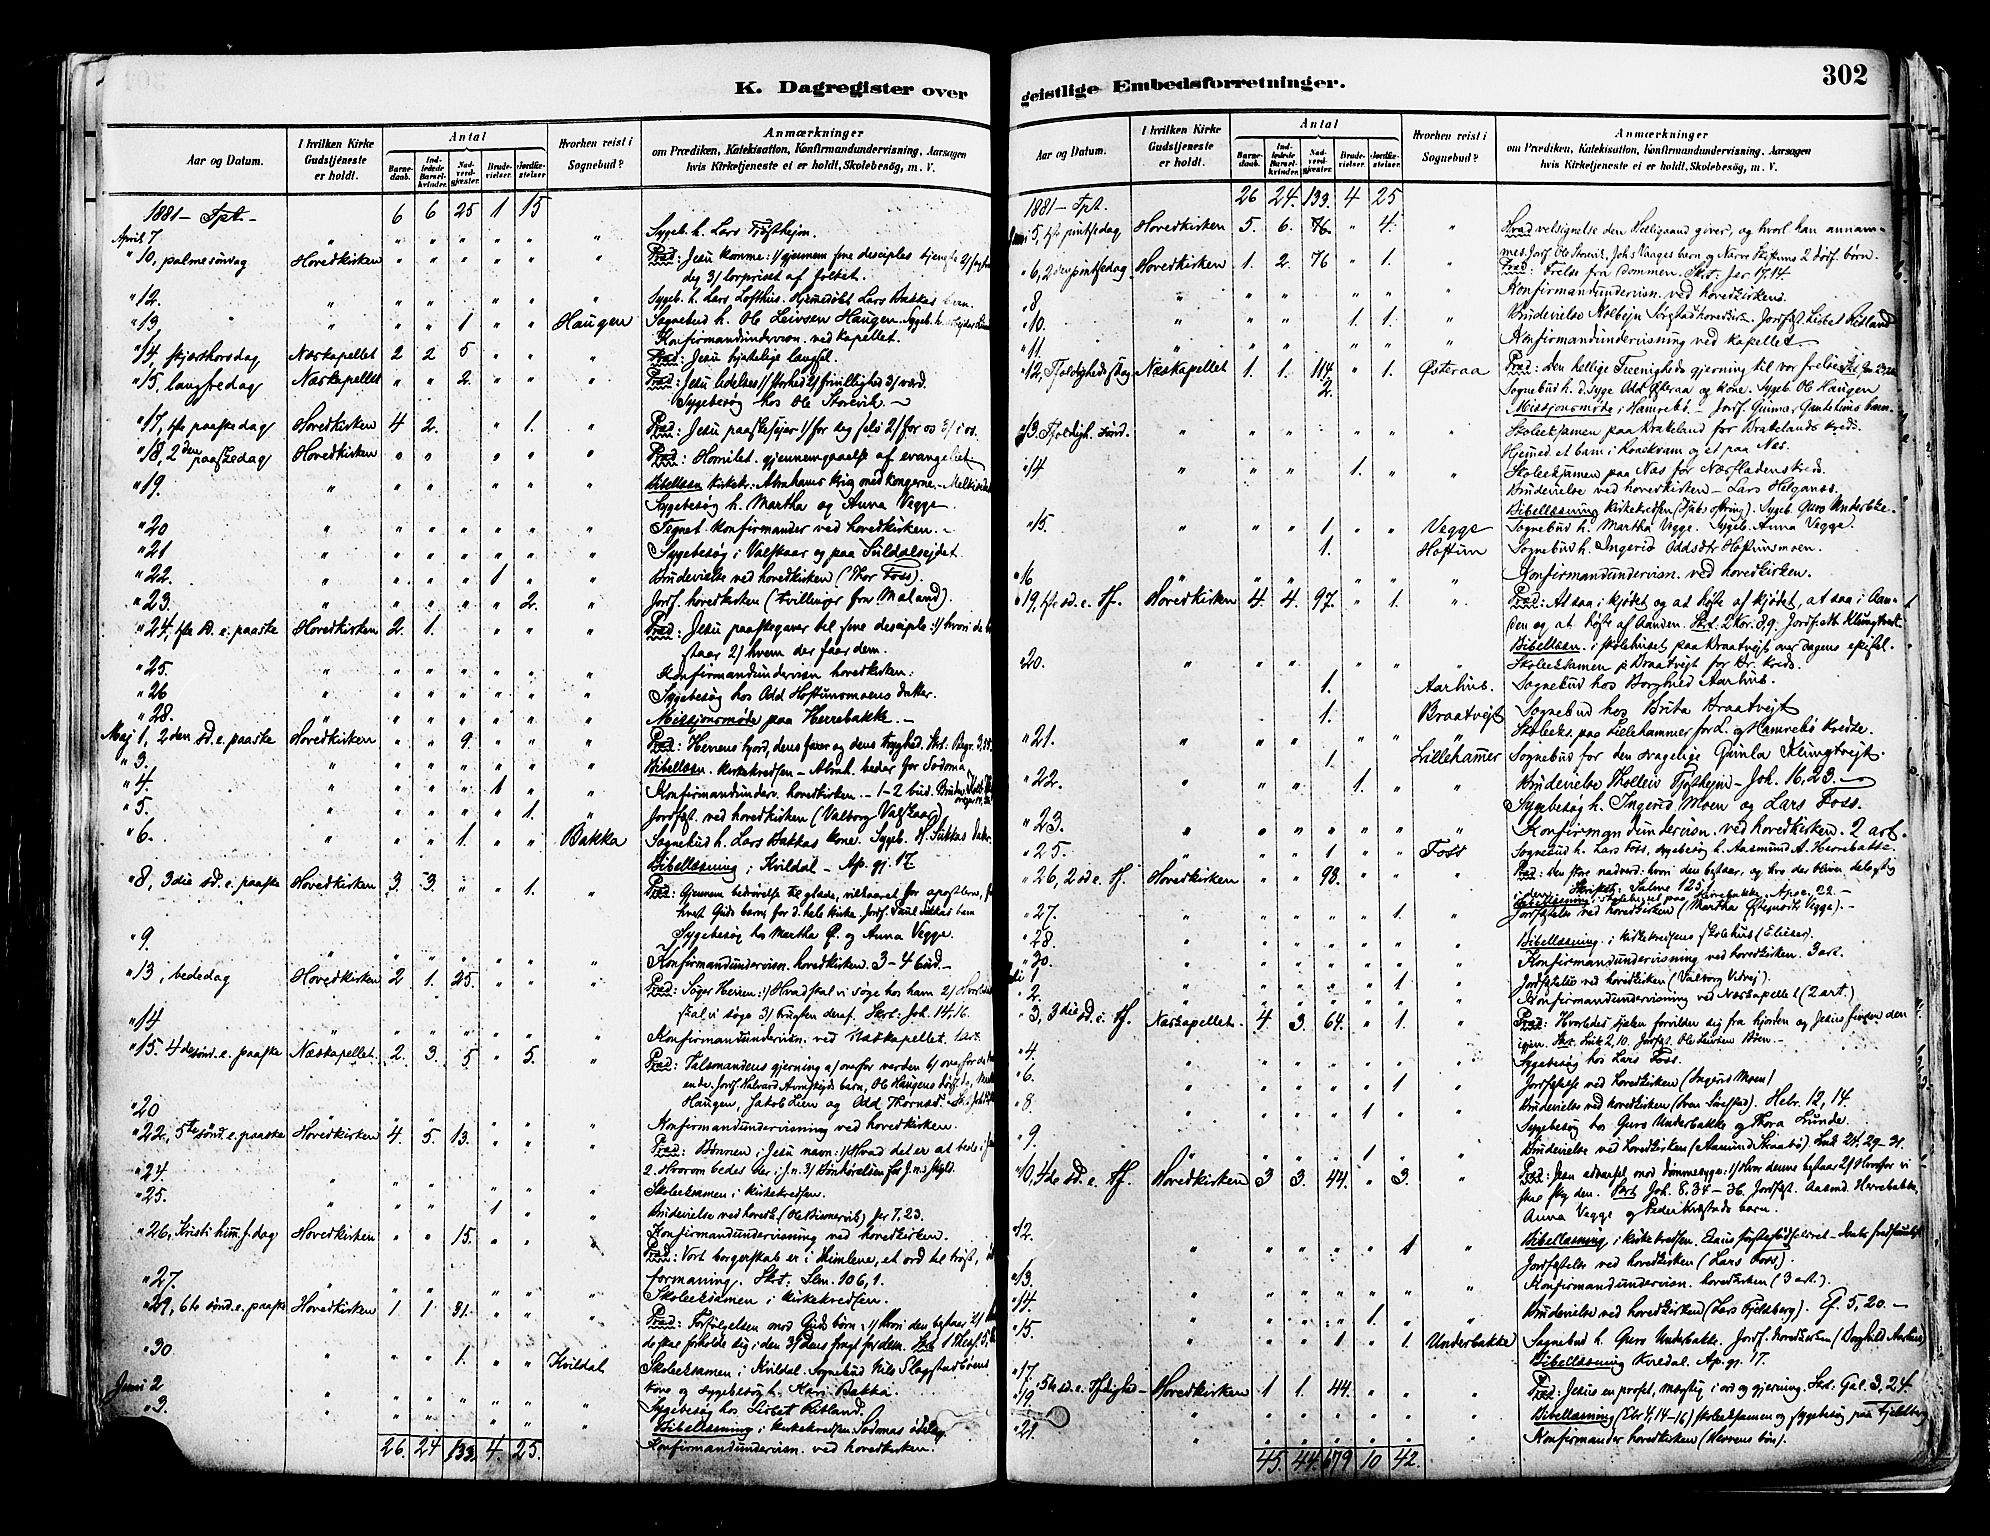 302
K. Dagregister over
Aar og Datum.
I hvilken Kirke Gudstjeneste er holdt.
Antal
Barnedaab.
Indledede Barselkvinder.
Nadverdgjester.
Brudevielser.
Jordfæstelser.
Hvorhen reist i Sognebud?
Anmærkninger
om Prædiken, Katekisation, Konfirmandundervisning, Aarsagen
hvis Kirketjeneste ei er holdt, Skolebesög, m. V.
1881 - Tpt. - 6 6 25 1 15
April 7 " " " " " " " Sygeb. h. Lars
" 10, palmesöndag Hovedkirken " " " " " " Præd: Jesu komme: 1/ gjennem sine disciples
deg 3/ lovpriset af folket.
" 12. " " " " " " " Sygeb. h. Lars Lofthus. Hjemmedöbt Lars Bakkas barn.
" 13, " " " 1. " " Haugen Sognebud h. Ole Leivsen Haugen.
Konfirmandundervisn. ved kapellet.
" 14, skjærthorsdag Næskapellet 2 2 5 " " " Præd: Jesu hjertelige længsel.
" 15, langfredag Næskapellet " " 2. " " " Præd: Jesu lidelses 1/ storhed 2/ frivillighed 3/ værd.
Sygebesög hos Ole Storevik. -
" 17, 1ste paaskedag Hovedkirken 4 2. " " 1. " Præd: Jesu paaskesejer 1/ for sig selv 2/ for os 3/ i os.
" 18, 2den paaskedag Hovedkirken " " " " " " Præd: Homilet. gjennemgaaelse af evangeliet
" 19. " " " " " " " Bibellæsn. kirkekr: Abrahams krig med kongerne. -
Sygebesög h. Martha og Anna Vegge.
" 20 " " " " " " " Tegnet konfirmander ved hovedkirken. -
" 21 " " " " " " " Sygebesög i Valskaar og paa Suldalsejdet.
" 22. " " " " 1 " " Brudevielse ved hovedkirken (Thor Foss).
" 23. " " " " " 2. " Jordf. hovedkirken (tvillinger fra Maland).
" 24, 1ste sd. e. paaske Hovedkirken 2. 1. " " " " Præd: Jesu paaskegaver til sine disciple: 1/ hvori de be
staar 2/ hvem der faar dem.
" 25. " " " " " " " Konfirmandundervisn hovedkirken.
" 26 " " " " " " " Sygebesög hos Odd Hoftunsmoens datter.
" 28. " " " " " " " Missionsmöde paa Herrebakke. -
Maj 1, 2den sd. e. paaske Hovedkirken " " 9. " " " Præd: Herrens hjord, dens farer og dens tryghed.
" 3. " " " " " " " Bibellæsn. kirkekredsen - Abrah. beder for Sodoma
" 4. " " " " 1 " " Konfirmandunderv. hovedkirken. - 1-2 bud.
" 5. " " " " " 1. " Jordfæst. ved hovedkirken (Valborg Valskaar)
" 6. " " " 1. " " Bakka Sognebud h. Lars Bakkas kone. Sygeb.
Bibellæsning i Kvildal - Ap. gj. 17.
" 8, 3die sd. e. paaske Hovedkirken 3. 3. " " 1. " Præd: Gjennem bedrøvelse til glæde, vilkaaret for apostlerne, for
hvert Guds barn, for d. hele kirke.
" 9. " " " " " " " Sygebesög hos Martha Ø. og Anna Vegge.
Konfirmandundervisn. hovedkirken. 3-4 bud. -
" 13, bededag Hovedkirken 2 1. 25. " " " Præd: Söger Herren: 1/ Hvad skal vi söge hos ham 2/
skal vi söge 3/ frugten deraf. Skrt: Joh. 14,16.
" 14 " " " " " " " Konfirmandundervisn. ved Næskapellet.
" 15. 4de sönd. e. paaske Næskapellet. 2. 3. 5 " 5. " Præd: Talsmandens gjerning a/ overfor verden b/ overfor de
Haugen, Jakob Lien og Odd
" 20 " " " " " " " Konfirmandundervisning ved hovedkirken.
" 22, 5te sönd. e. paaske Hovedkirken 4. 5. 13. " " " Præd: Bönnen i Jesu navn: 1/ Hvad det er at bede i
" 24. " " " " " " " Skoleeksamen i kirkekredsen.
" 25. " " " " 1 " " Brudevielse ved hovedk.
" 26, Kristi himf. dag Hovedkirken " " 15. " " " Konfirmandundervisning ved hovedkirken.
Præd: Vort borgerskab er i Himlene, et ord til tröst,
formaning. Skt: Sem. 106,1.
" 27. " " " " " " " Skoleeksamen i kirkekredsen.
" 29, 6te sönd. e. paaske Hovedkirken 1 1 31. " " " Præd: Forfölgelsen mod Guds börn: 1/ hvori den bestaar
de skal forholde sig i den 3/ Dens frugt for dem.
" 30 " " " 1. " " Kvildal Skoleeksamen i Kvildal. Sognebud
kone og sygebesög h. Kari Bakka.
Juni 2 " " " " " " " Sygebesög hos Lisbet Ritland.
" 3. " " " " " " " Bibellæsning i kirkekredsen. Sodomas ödelæg.
Konfirmandundervisn. ved hovedkirken.
26. 24 133. 4. 25.
geistlige Embedsforretninger.
Aar og Datum.
I hvilken Kirke Gudstjeneste er holdt.
Antal
Barnedaab.
Indledede Barselkvinder.
Nadverdgjester.
Brudevielser.
Jordfæstelser.
Hvorhen reist i Sognebud?
Anmærkninger
om Prædiken, Katekisation, Konfirmandundervisning, Aarsagen
hvis Kirketjeneste ei er holdt, Skolebesög, m. V.
1881 - Tpt. 26 24. 133. 4 25
Juni 5, 1ste pintsedag Hovedkirken 5. 6. 76 " 4. " Hvad velsignelse den Helligaand giver, og hvorl. han annam-
mes.
" 6, 2den pintsedag Hovedkirken 1. 2. 76 " 1. " Præd: Frelse fra dommen. Skt. Jer 17,14
" 8 " " " " " " " Konfirmandundervisn. ved hovedkirken.
" 10. " " " " 1. 1. " Brudevielse
" 11. " " " " " " " Konfirmandundervisning ved kapellet.
" 12, Næskapellet 1. 1. 114 " 1. Østeraa Præd: Den hellige Treenigheds gjerning til vor frelse
2. Sognebud h. d. syge Odd Østeraa og kone. Sygeb. Ole Haugen
Missionsmöde i Hamrebö. - Jordf. Gunnar
13. " " " " " " " Skoleeksamen paa Brakeland for Brakelands kreds.
" 14 " " " " 1. " " Skoleeksamen paa Næs for
Brudevielse ved hovedkirken - Lars Helganes.
Bibellæsning kirkekredsen
" 15. " " " 1 " " Vegge Sognebud h. Martha Vegge. Sygeb. Anna Vegge.
1. Hoftun Sognebud h. Ingerid Oddsdtr Hoftunsmoen.
" 16 " " " " " " " Konfirmandundervisn. ved hovedkirken.
" 19, 1ste sd. e. Tf. Hovedkirken 4. 4. 97. " 1. " Præd: At saa i kjødet og at høste af kjødet, at saa i Aan-
den og at høste af Aanden.
Bibellæsn. i skolehuset paa Braatvejt over dagens epistel.
" 20. " " " " " " " Skoleeksamen p. Braatvejt for Br. kreds.
1. Aarhus. Sognebud hos Borghild Aarhus.
1. Braatvejt Sognebud hos Brita Braatvejt
" 21. " " " " " " " Skoleeks. paa Lillehammer for L. og Hamrebö kredse.
1 Lillehamer Sognebud for den svagelige Gunla Klungtvejt.
" 22. " " " " 1. " " Brudevielse Tholleiv - Joh. 16,23.
Sygebesög h. Ingerid Moen og Lars Foss.
" 23. " " " " " " " Konfirmandundervisn. ved hovedkirken. 2 art.
" 25. " " " 1 " " Foss Sognebud h. Lars Foss, sygebesög h. Aasmund A. Herrebakke.
" 26, 2 sd. e. Tf. Hovedkirken " " 98. " " " Præd: Den store nadverd: hvori den bestaar, og hvo der bliver delagtig
" 27. " " " " " 1 " Jordfæstelse ved hovedkirken
" 28. " " " " " " " Bibellæsning i kirkekredsens skolehus (Elieser).
" 30. " " " " " " " Konfirmandundervisning ved hovedkirken. 3 art.
1 " " " " " 1 " Jordfæstelse ved hovedkirken
" 2. " " " " " " " Konfirmandundervisning ved Næskapellet (2 art.)
" 3, 3die sd. e. Tf. Næskapellet. 4. 3. 64. " 1. " Præd: Hvorledes sjælen forvilder sig fra hjorden og Jesus finder den
igjen.
" 4. " " " " " " " Sygebesög hos Lars Foss.
" 6. " " " " " 1 " Jordfæstelse ved hovedkirken (Ingerid Moen)
" 8. " " " " 1 " " Brudevielse ved hovedkirken Hebr. 12,14.
Sygebesög hos Guro Underbakke og Thora Lunde.
" 9. " " " " 1 " " Brudevielse ved hovedkirken Luk 24, 29-31.
" 10, 4de sd. e. Tf. Hovedkirken 3 3. 44. " 3. " Præd: Jesu advarsel mod dömmesyge: 1/ Hvor denne bestaar 2/ Hvorfor vi
skal sky den. Skrt Joh. 8, 34-36. Jordfæst. Aasmd. Herrebakke,
Anna Vegge og barn.
" 12. " " " " " 1 " Bibellæsning i kirkekredsen.
Jordfæstelse ved hovedkirken (Lars Foss)
" 13. " " " " " " " Konfirmandundervisn. hovedkirken (3 art.).
" 14. " " " " 1. " " Brudevielse ved hovedkirken (Lars Fjeldberg). Ef. 5,20. -
" 15. " " " 1 " 1 Underbakke Sognebud h. Guro Underbakke. Jordf. hovedkirken (Borghild Aarhus)
Bibellæsning Kvildal. Ap. gj. 17.
" 17. 5te sd. e. Hovedkirken 1 1. 44. " " " Præd: Jesus en profet, mægtig i ord og gjerning. Skt. Gal. 3,24.
" 19. " " " " " " " Bibellæsning skoleeksamen og sygebesög paa Fjeldberg
" 21. " " " " " " " Konfirmander hovedkirken (Herrens bön).
45. 44. 679 10 42.